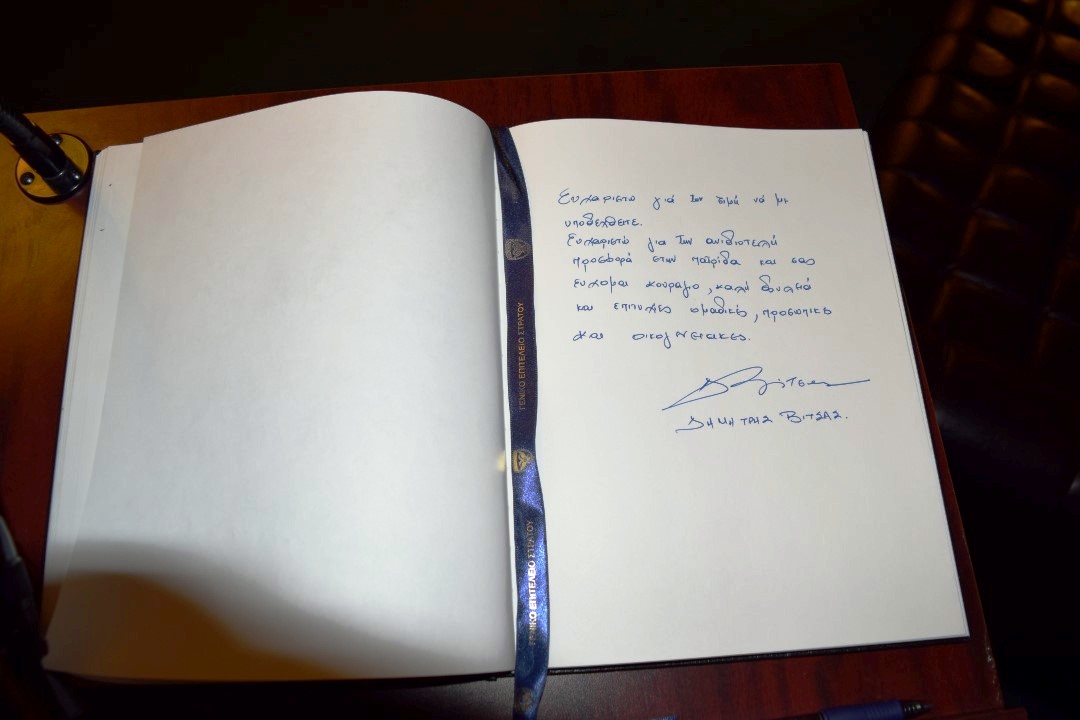 Ευχαριστώ γιά την τιμή νά με
υποδεχθείτε.
Ευχαριστώ για την ανιδιοτελή
προσφορά στην πατρίδα και σας
εύχομαι κουράγιο, καλή δουλειά
και επιτυχίες ομαδικές, προσωπικές
και οικογενειακές.
ΔΗΜΗΤΡΗΣ ΒΙΤΣΑΣ.
ΓΕΝΙΚΟ ΕΠΙΤΕΛΕΙΟ ΣΤΡΑΤΟΥ
ΓΕΝΙΚΟ ΕΠΙΤΕΛΕΙΟ ΣΤΡΑΤΟΥ